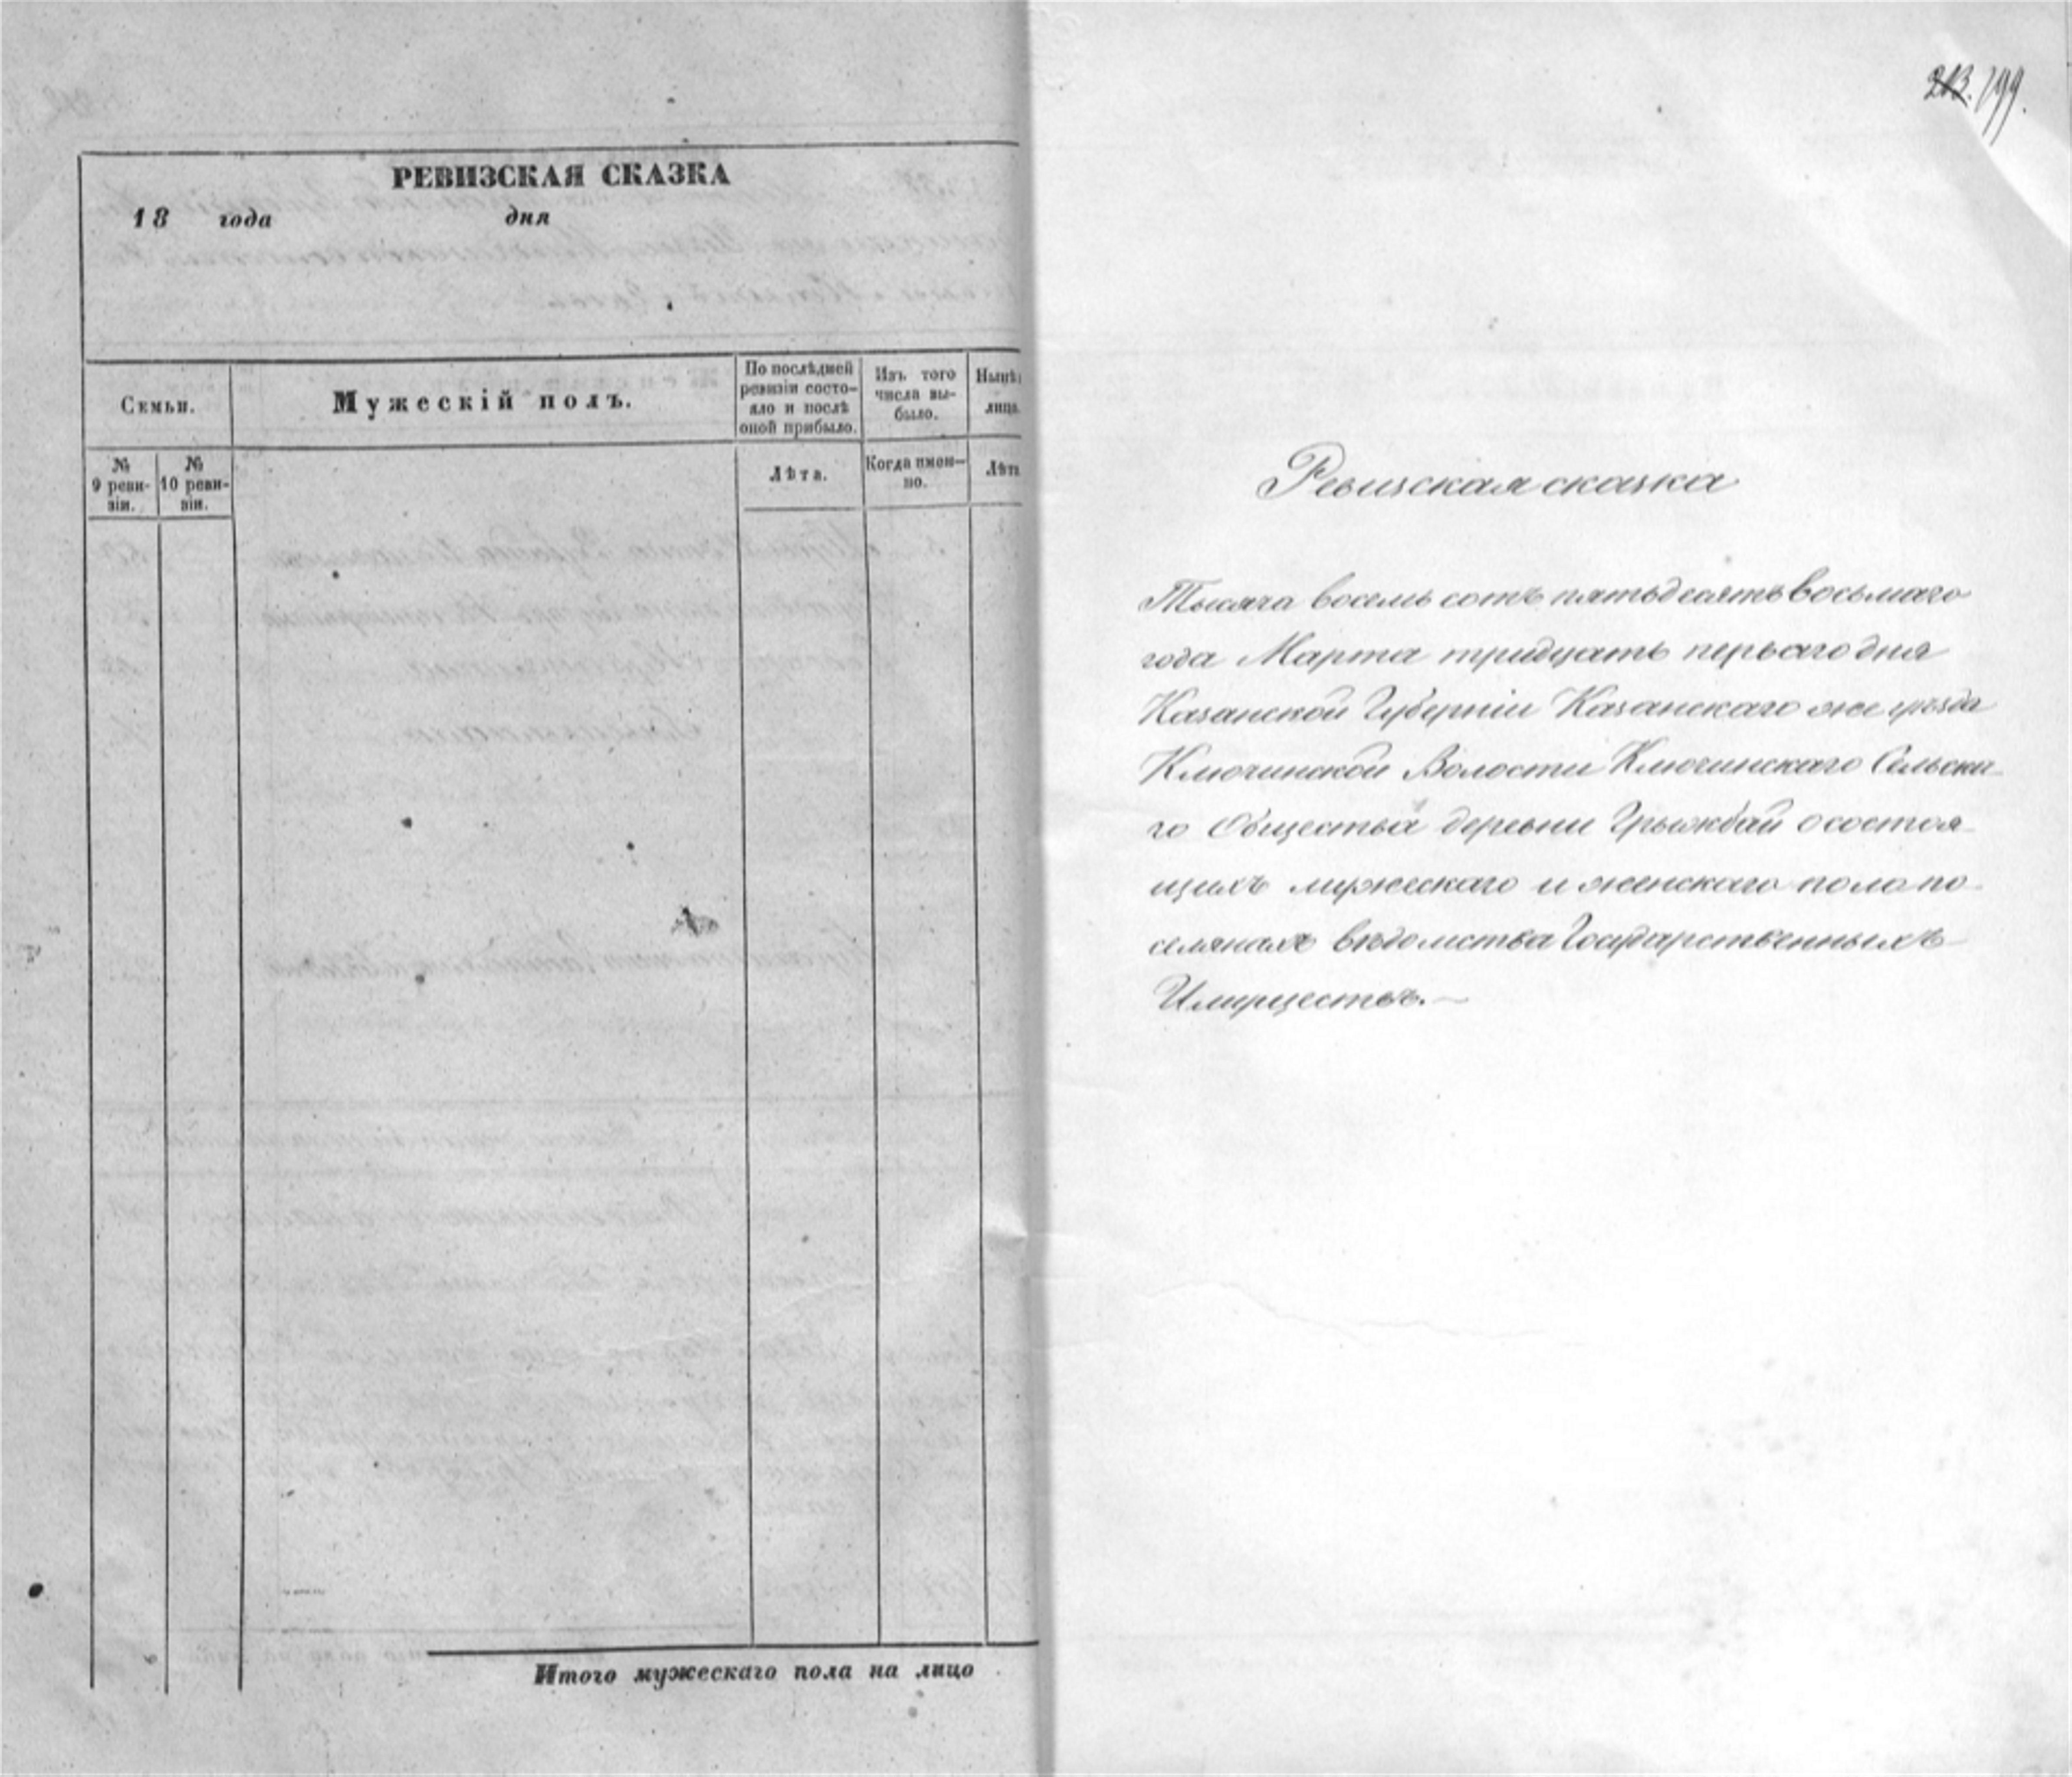 РЕВИЗСКАЯ СКАЗКА
18 года дня
Семьи.
Мужескій полъ.
По послѣдней
ревизіи состо-
яло и послѣ
оной прибыло.
Изъ того
числа вы-
было.
Нынѣ
лицо
№
9 реви-
зіи.
№
10 реви-
зіи.
Лѣта.
Когда имен-
но.
Лѣт
Итого мужескаго пола на лицо
213. 199.
Ревизская сказка
Тысяча восемь сотъ пятьдесятъ восьмаго
года Марта тридцать перваго дня
Казанской Губерніи Казанскаго же уѣзда
Ключинской Волости Ключинскаго Сельска-
го Общества деревни о состоя-
щихъ мужескаго и женскаго пола по-
селянахъ вѣдомства Государственныхъ
Имуществъ.